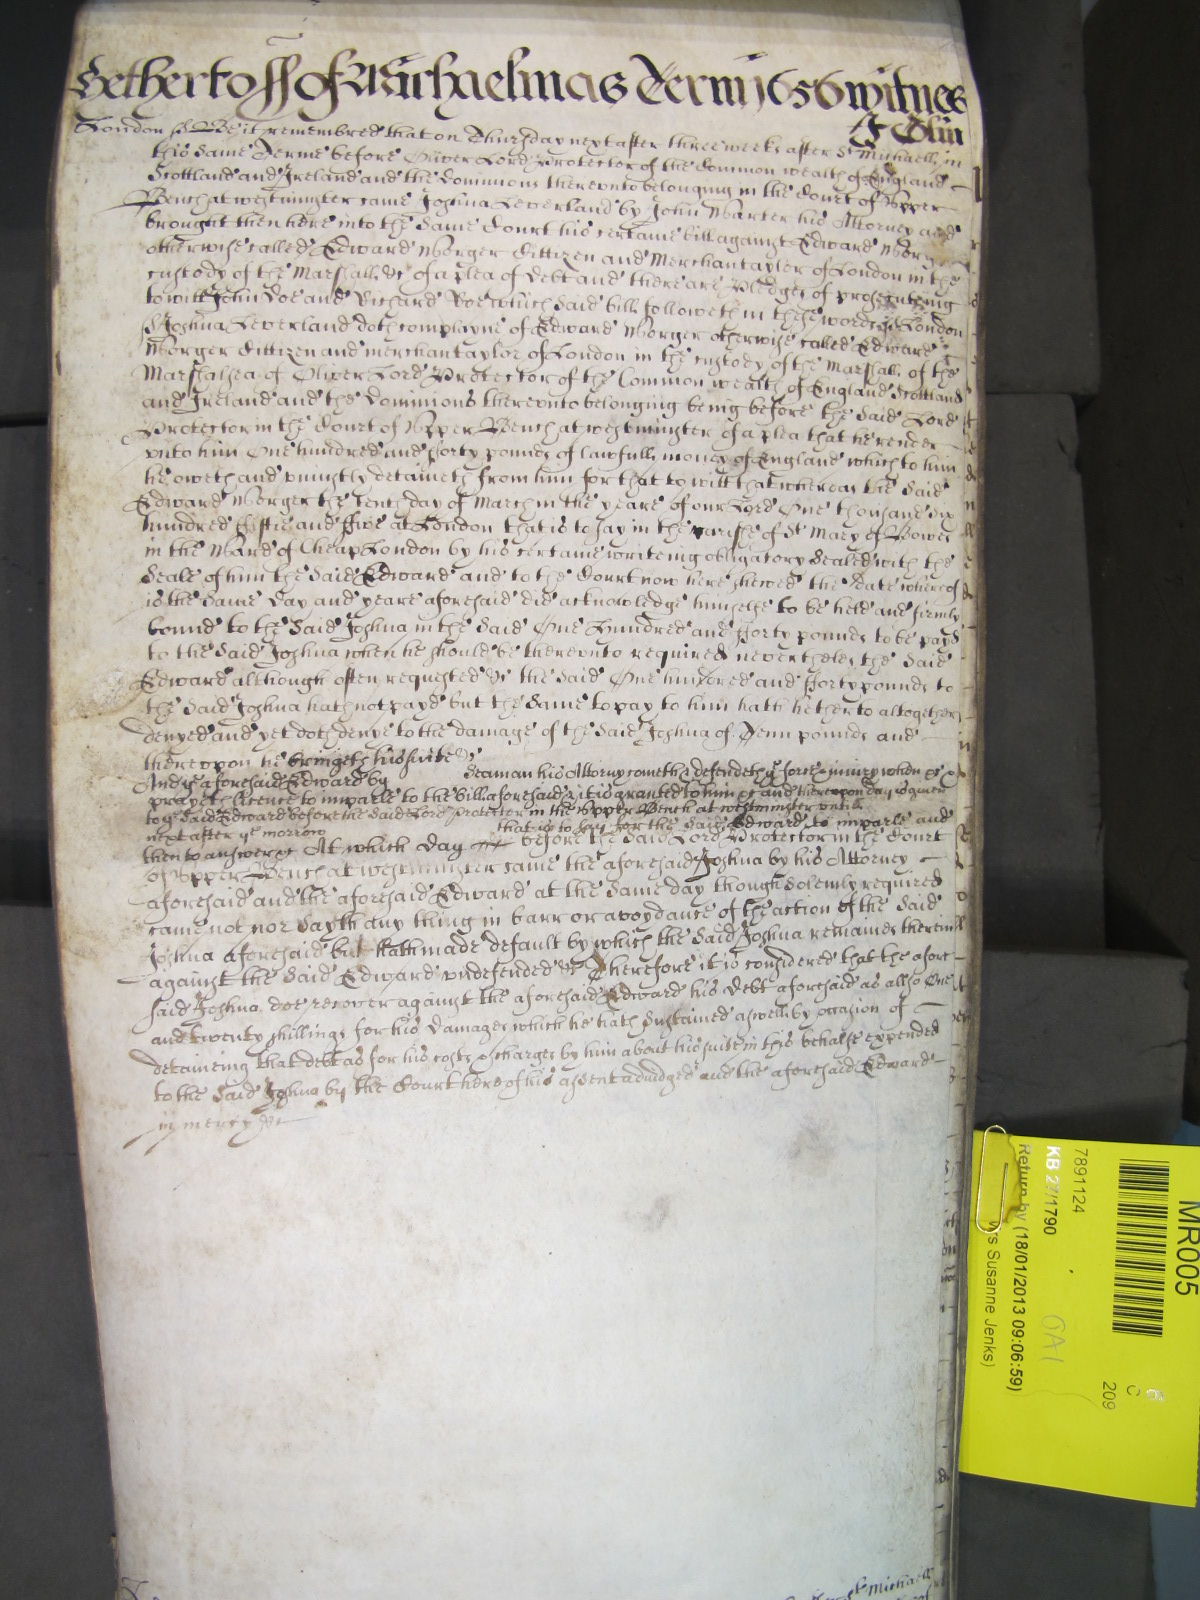 Yet hertofs of Michaelmas Terme 1656 witnes
Glin
London ss Be it remembred that on Thursday next after three weekes after St Michaell in
this same Terme before Oliver Lord Protector of the Common wealth of England
Scottland and Ireland and the dominions therevnto belonging in the Court of Vpper
Bench at westminster came Joshua Leverland by John Warter his Attorney and
brought then here into the same Court his certaine bill against Edward
otherwise called Edward Worger Cittizen and Merchantayler of London in the
custody of the Marshall &c of a plea of debt and there are Pledges of prosecuteing
to witt John Doe and Richard Roe which said bill followeth in these wordes ss London
ss Joshua Leverland doth complayne of Edward Worger otherwise called Edward
Worger Cittizen and merchantaylor of London in the custody of the Marshall of the
Marshalsea of Oliver Lord Protector of the Common wealth of England Scottland
and Ireland and the Dominions therevnto belonging being before the said Lord
Protector in the Court of Vpper Bench at westminster of a plea that he render
vnto him One hundred and fforty pounds of lawfull money of England which to him
he oweth and vniustly detaineth from him for that to witt that whereas the said
Edward Worger the tenth day of March in the yeare of our Lord One thousand six
hundred ffiftie and ffive at London that is to say in the parish of St Mary of Bowes
in the Ward of Cheap London by his certaine writeing obligatory Sealed with the
Seale of him the said Edward and to the Court now here shewed the date whereof
is the same day and yeare aforesaid did acknowledge himselfe to be held and firmly
bound to the said Joshua in the said One hundred and fforty pounds to be payd
to the said Joshua when he should be therevnto required neverthelesse the said
Edward although often requested &c the said One hundred and fforty pounds to
the said Joshua hath not payd but the same to pay to him hath hetherto altogether
denyed and yet doth denye to the damage of the said Joshua of Tenn pounds and
therevpon he bringeth his suite &c
And ye aforesaid Edward by Seaman his Attorny cometh & defendeth ye force & iniury when &c &
prayeth licence to imparle to the bill aforesaid & it is granted to him &c and therevpon day is given
to ye said Edward before the said Lord Protector in the Vpper Bench at westminster vntill
next after ye morrow that is to say for the said Edward to imparle and
then to answer &c At which day before the said Lord Protector in the Court
of Vpper Bench at westminster came the aforesaid Joshua by his Attorney
aforesaid and the aforesaid Edward at the same day though solemly required
came not nor sayth any thing in barr or avoydance of the action of the said
Joshua aforesaid but hath made default by which the said Joshua remaines therein
against the said Edward vndefended &c Therefore it is considered that the afore
said Joshua doe recover against the aforesaid Edward his debt aforesaid as allso One
and twenty shillings for his damages which he hath sustained aswell by occasion of
detaineing that debt as for his costs & charges by him about his suite in this behalfe expended
to the said Joshua by the Court here of his assent adiudged and the aforesaid Edward
in mercy &c
St Michaell
MR005
7891124
KB 27/1790
Return by (18/01/2013 09:06:59)
Mrs Susanne Jenks)
GA1
C
209